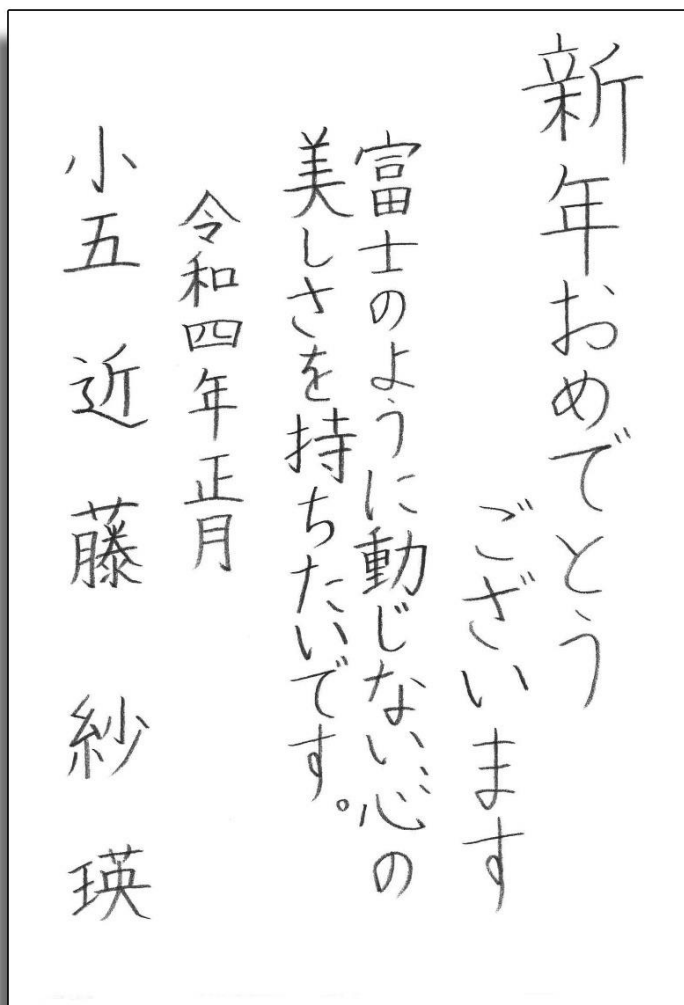 新年おめでとう
ございます
富士のように動じない心の
美しさを持ちたいです。
令和四年正月
小五 近藤 紗瑛